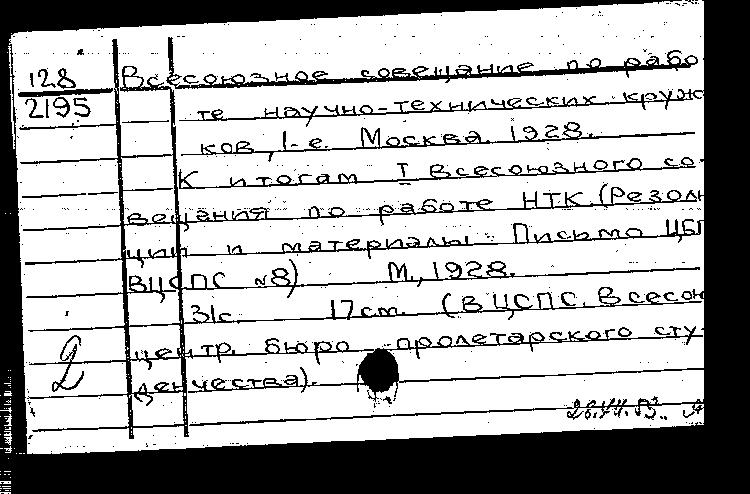 128
2195
Всесоюзное совещание по рабо-
те научно-технических круж
ков, I-е. Москва. 1928.
К итогам I Всесоюзного со-
вещания по работе НТК. (Резолю
ции и материалы. Письмо ЦБП
ВЦСПС №8). М., 1928.
31с. 17см. (ВЦСПС. Всесою
центр. бюро пролетарского сту-
денчества).
2